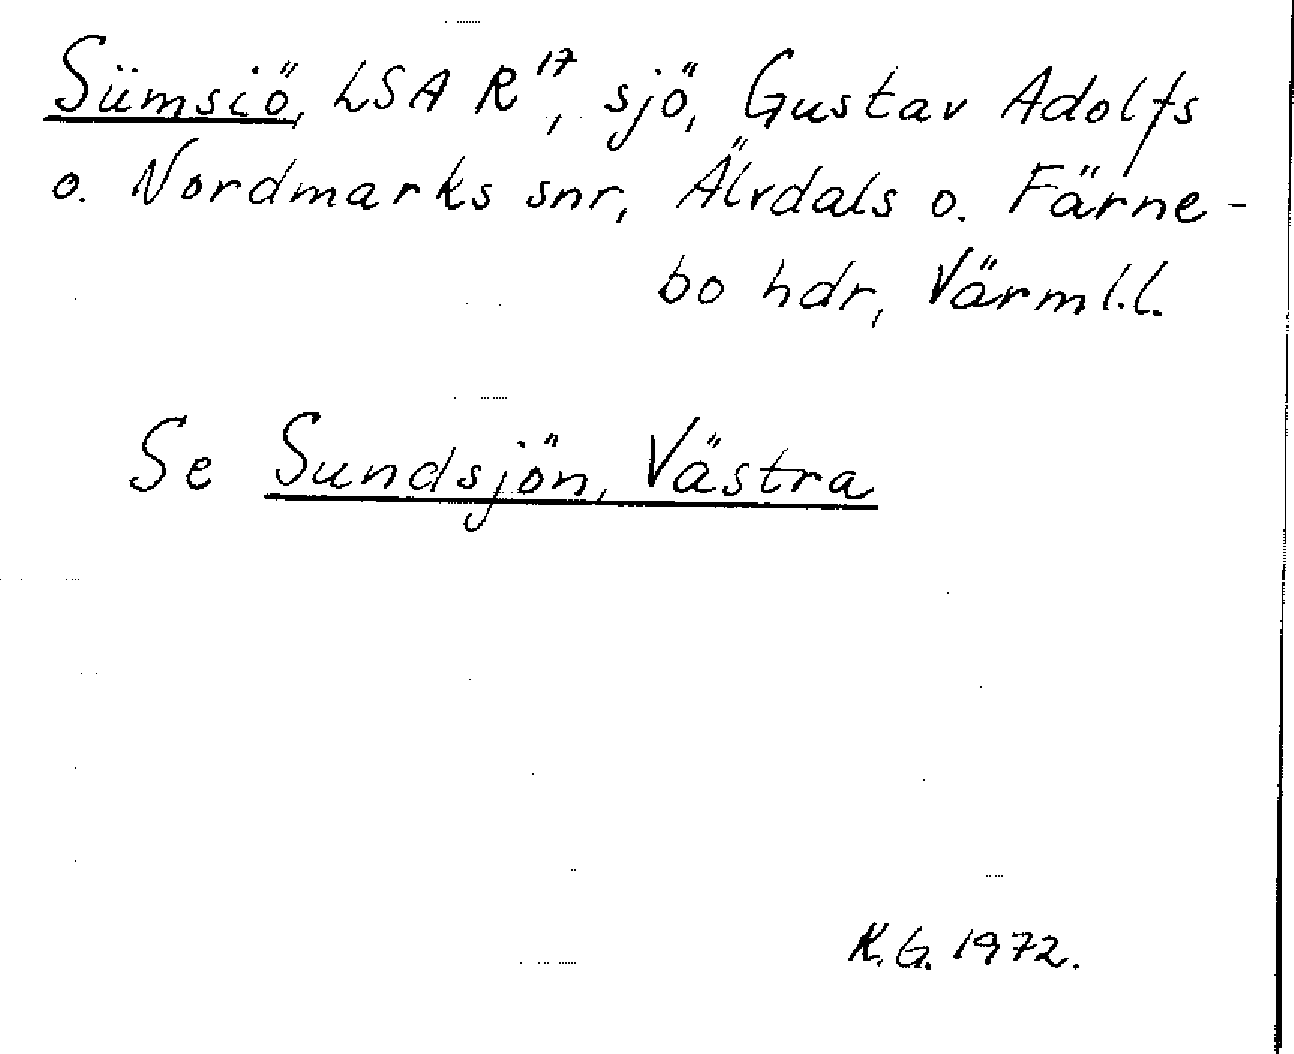 Sümsiö, LSA R¹⁷, sjö, Gustav Adolfs
o. Nordmarks snr, Älvdals o. Färne-
bo hdr, Värml.l.
Se Sundsjön, Västra
K.G. 1972.